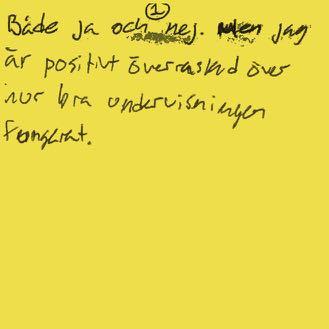 ①
Både ja och nej. Men jag
är positivt överraskad över
hur bra undervisningen
fungerat.